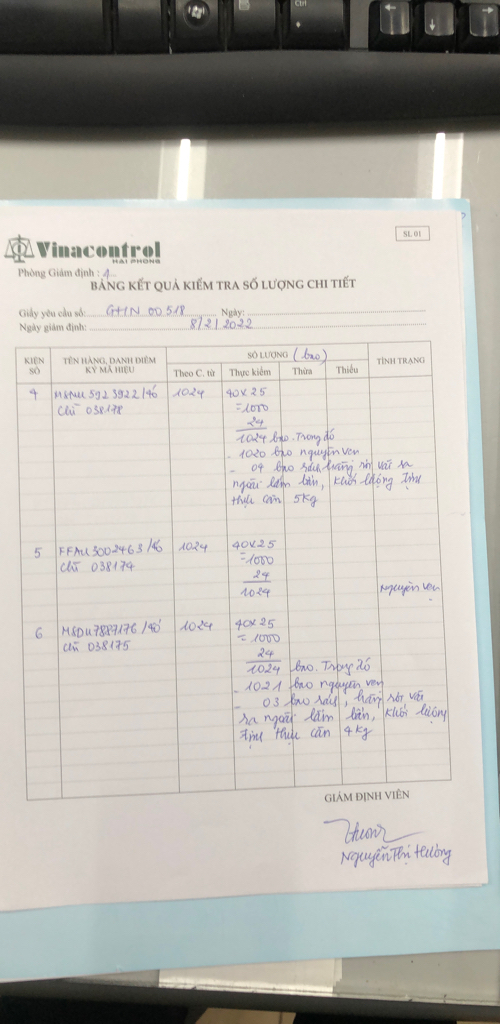 Ctrl
SL 01
Vinacontrol
HAI PHONG
Phòng Giám định : 1
BẢNG KẾT QUẢ KIỂM TRA SỐ LƯỢNG CHI TIẾT
Giấy yêu cầu số: GHN 00518 Ngày:
Ngày giám định: 8/2/2022
KIỆN SỐ
TÊN HÀNG, DANH ĐIỂM KÝ MÃ HIỆU
SỐ LƯỢNG (bao)
TÌNH TRẠNG
Theo C. từ Thực kiểm Thừa Thiếu
4 MSMU 592 3922/40 1024 40x25
Chì 038178 =1000
24
1024 bao. Trong đó
- 1020 bao nguyên vẹn
- 04 bao rách, hàng rơi vãi ra
ngoài lấm bẩn, khối lượng tịnh
thực cân 5kg
5 FFAU3002463/40 1024 40x25
Chì 038174 =1000
24
1024 Nguyên vẹn
6 MSDU7887176/40 1024 40x25
Chì 038175 = 1000
24
1024 bao. Trong đó
- 1021 bao nguyên vẹn
- 03 bao rách, hàng rơi vãi
ra ngoài lấm bẩn, khối lượng
tịnh thực cân 4kg
GIÁM ĐỊNH VIÊN
Nguyễn Thị Hường